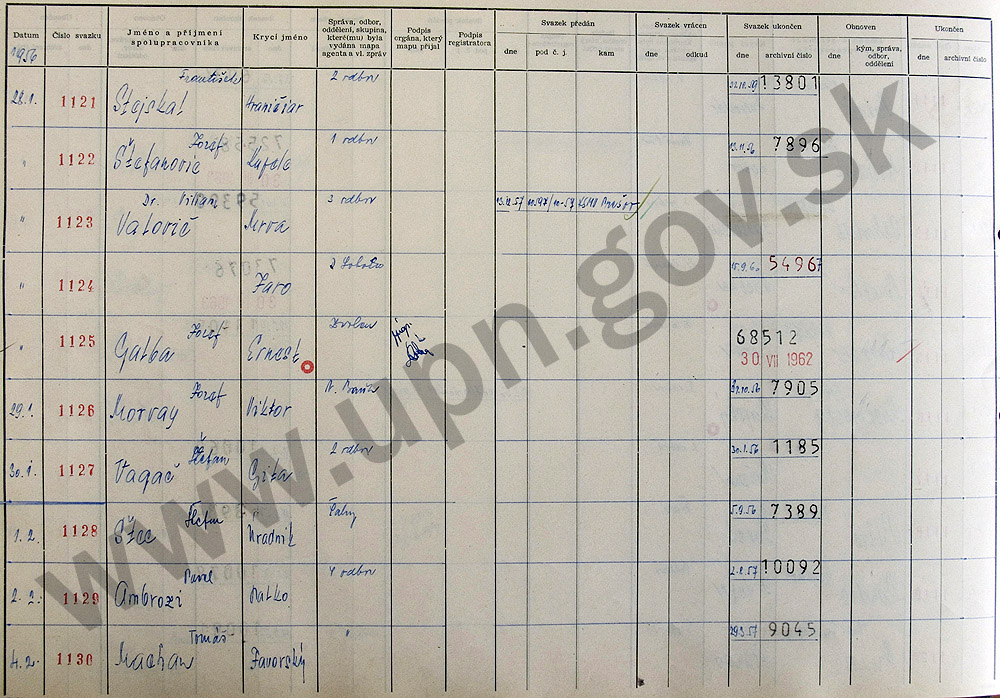 Datum Číslo svazku Jméno a příjmení spolupracovníka Krycí jméno Správa, odbor, oddělení, skupina, které(mu) byla vydána mapa agenta a vl. zpráv Podpis orgána, který mapu přijal Podpis registratora Svazek předán Svazek vrácen Svazek ukončen Obnoven Ukončen
dne pod č. j. kam dne odkud dne archivní číslo dne kým, správa, odbor, oddělení dne archivní číslo
1956
28.1. 1121 František Stejskal Hraničiar 2 odbor 13801
" 1122 Jozef Štefanovič 1 odbor 13.11.56 7896
" 1123 Dr. Vilian Valovič Mrva 3 odbor 13.12.57
" 1124 Jaro 15.9.60 54967
" 1125 Jozef Galba Ernest Zvolen 68512
30 VII 1962
29.1. 1126 Jozef Morvay Viktor 22.10.56 7905
30.1. 1127 Štefan Vagač Gita 2 odbor 30.1.57 1185
1.2. 1128 Štefan Hradník 5.9.56 7389
2.2. 1129 Pavel Ambrozi Matko 4 odbor 2.8.57 10092
4.2. 1130 Tomáš Machan Javorský " 29.3.57 9045
www.upn.gov.sk